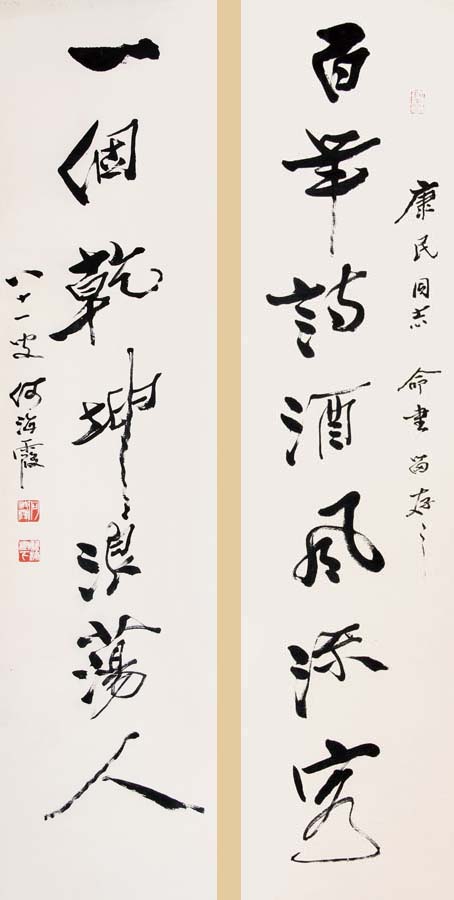 康民同志 命書 留存之
百年詩酒風流客
一個乾坤浪蕩人
八十一叟 何海霞